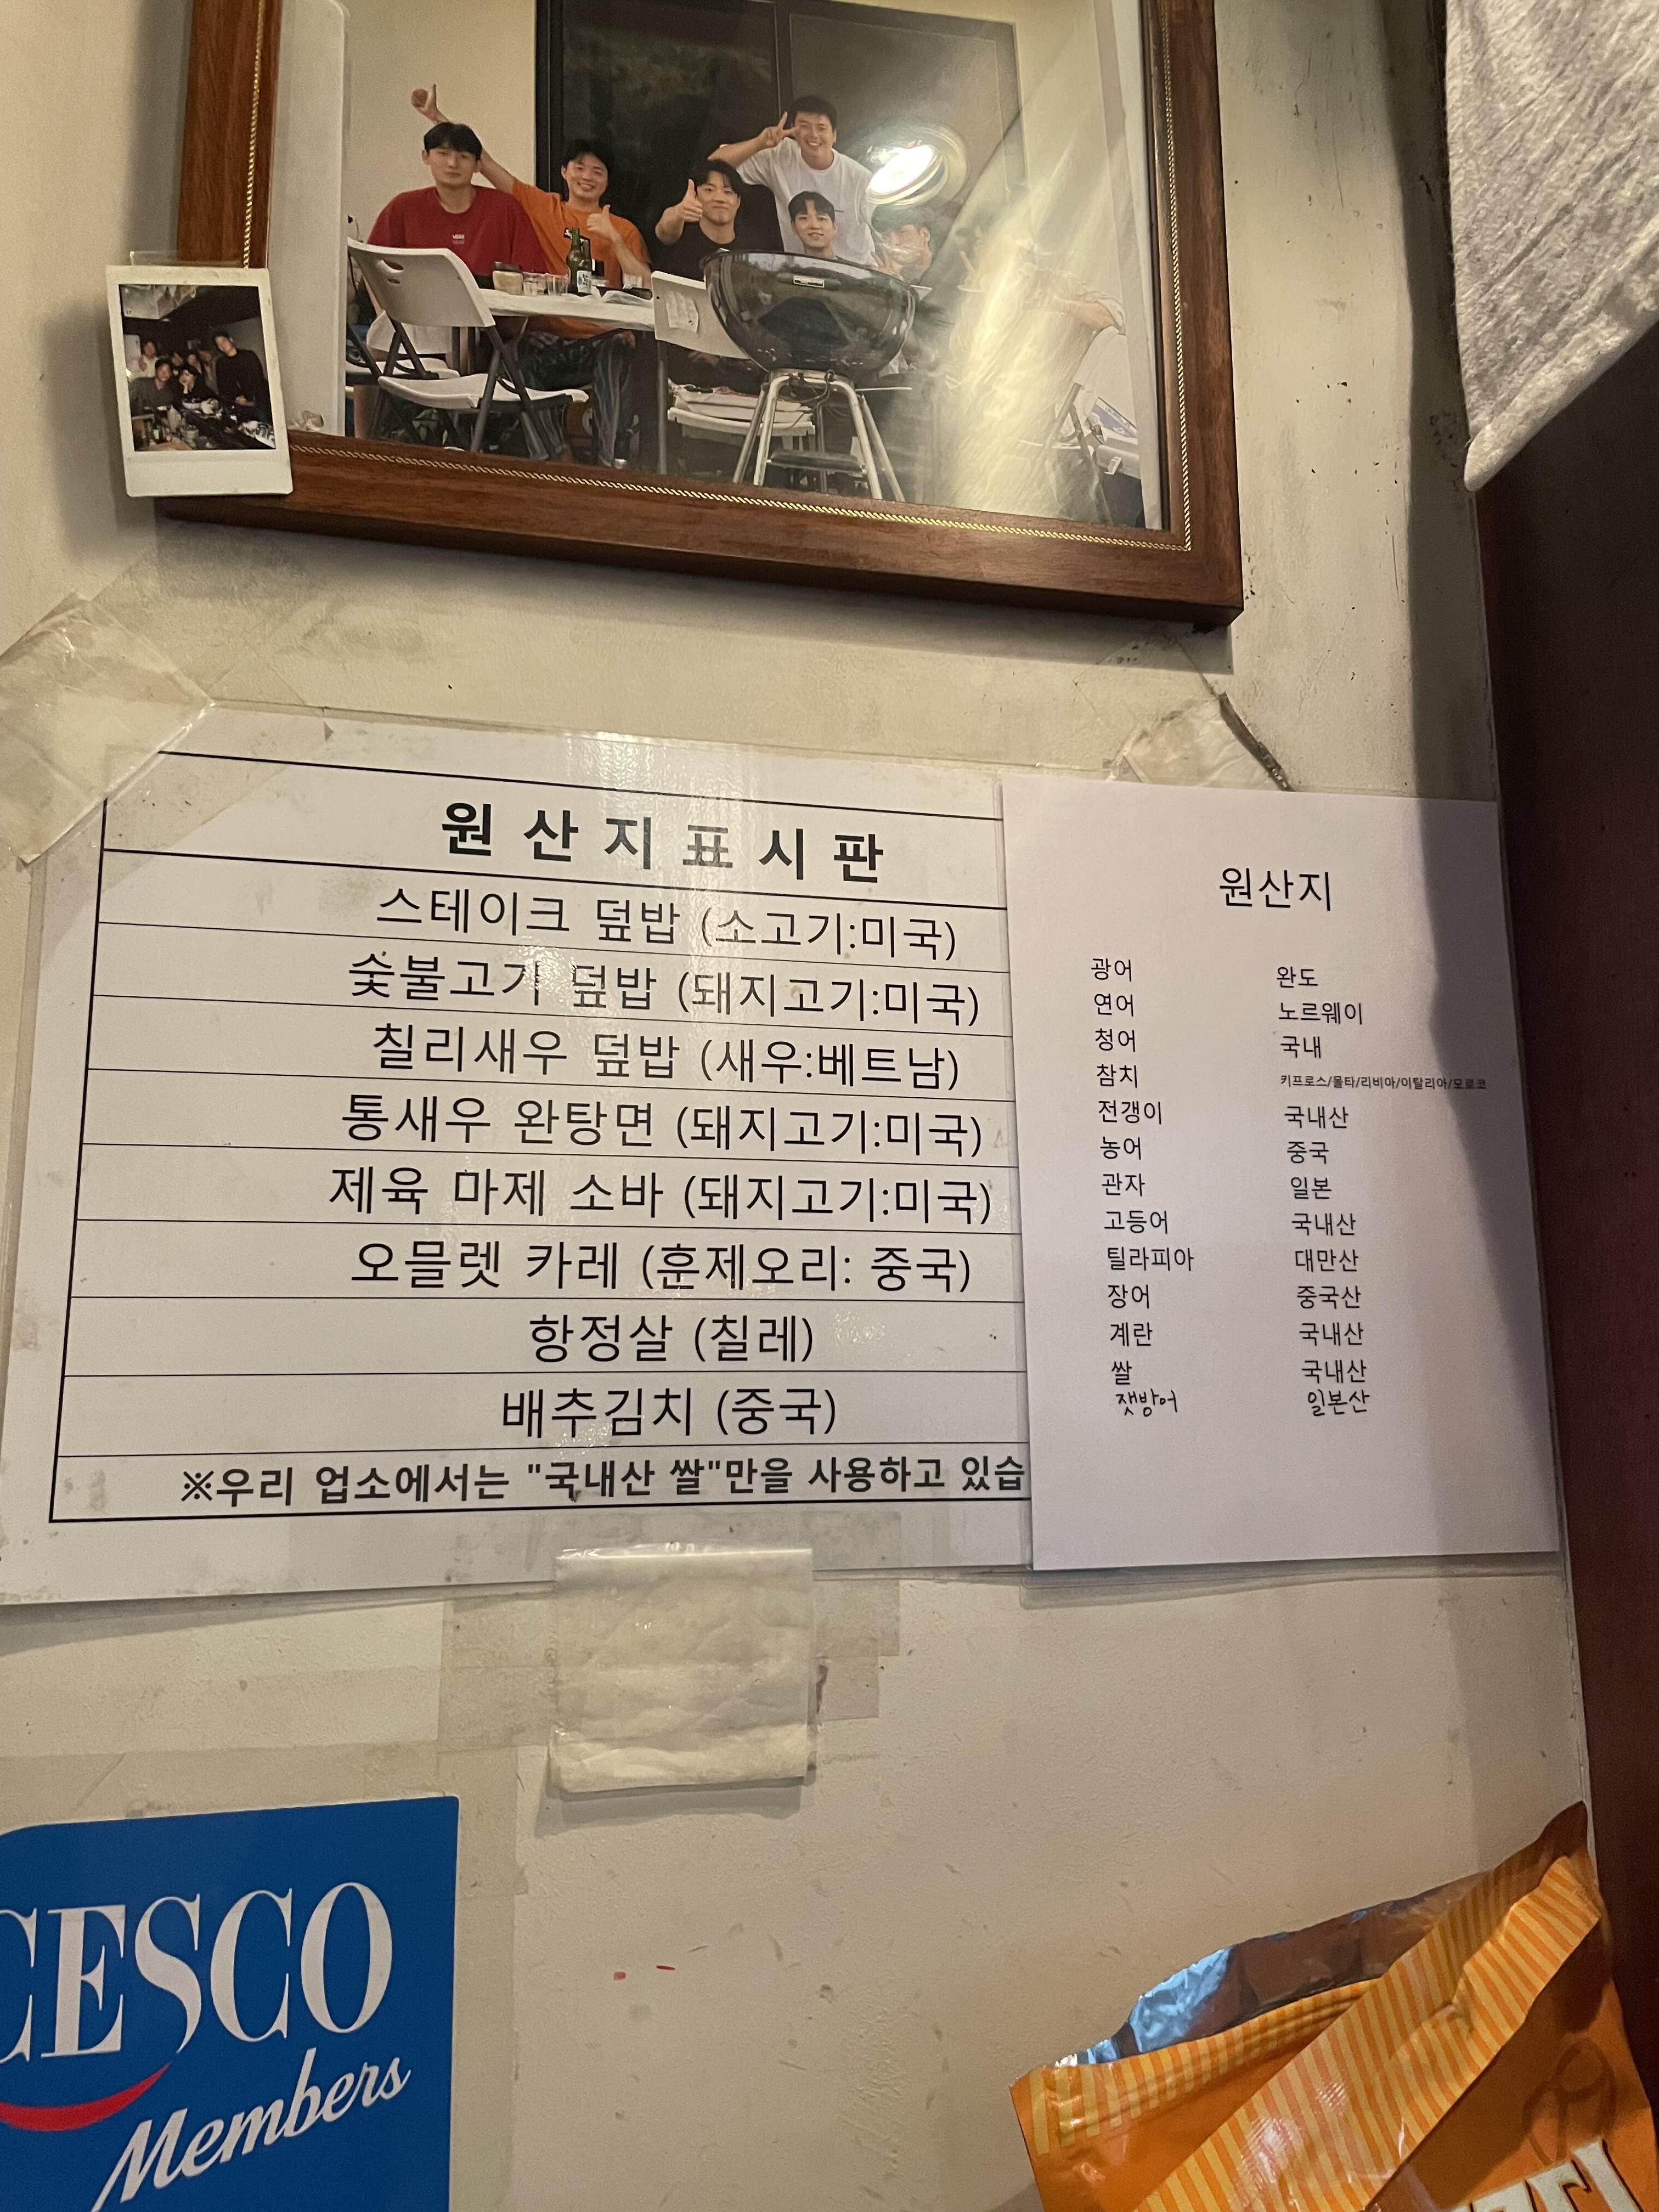 원산지표시판
스테이크 덮밥 (소고기:미국)
숯불고기 덮밥 (돼지고기:미국)
칠리새우 덮밥 (새우:베트남)
통새우 완탕면 (돼지고기:미국)
제육 마제 소바 (돼지고기:미국)
오믈렛 카레 (훈제오리: 중국)
항정살 (칠레)
배추김치 (중국)
※우리 업소에서는 "국내산 쌀"만을 사용하고 있습
원산지
광어 완도
연어 노르웨이
청어 국내
참치 키프로스/몰타/리비아/이탈리아/모로코
전갱이 국내산
농어 중국
관자 일본
고등어 국내산
틸라피아 대만산
장어 중국산
계란 국내산
쌀 국내산
잿방어 일본산
CESCO
Members